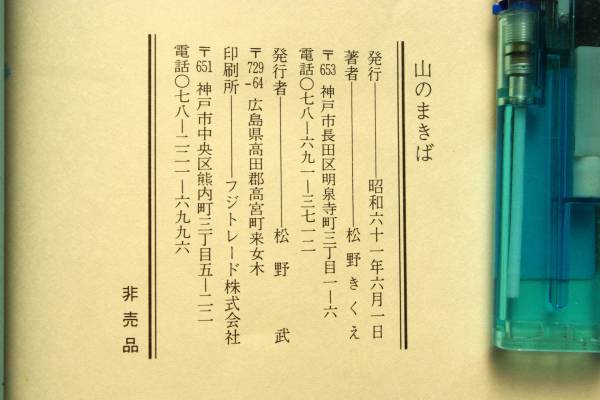 山のまきば
発行――――昭和六十一年六月一日
著者――――松野きくえ
〒653 神戸市長田区明泉寺町三丁目一―六
電話〇七八―六九一―三七一二
発行者――――松野 武
〒729-64 広島県高田郡高宮町来女木
印刷所――――フジトレード株式会社
〒651 神戸市中央区熊内町三丁目五―二二
電話〇七八―二二一―六九九六
非売品